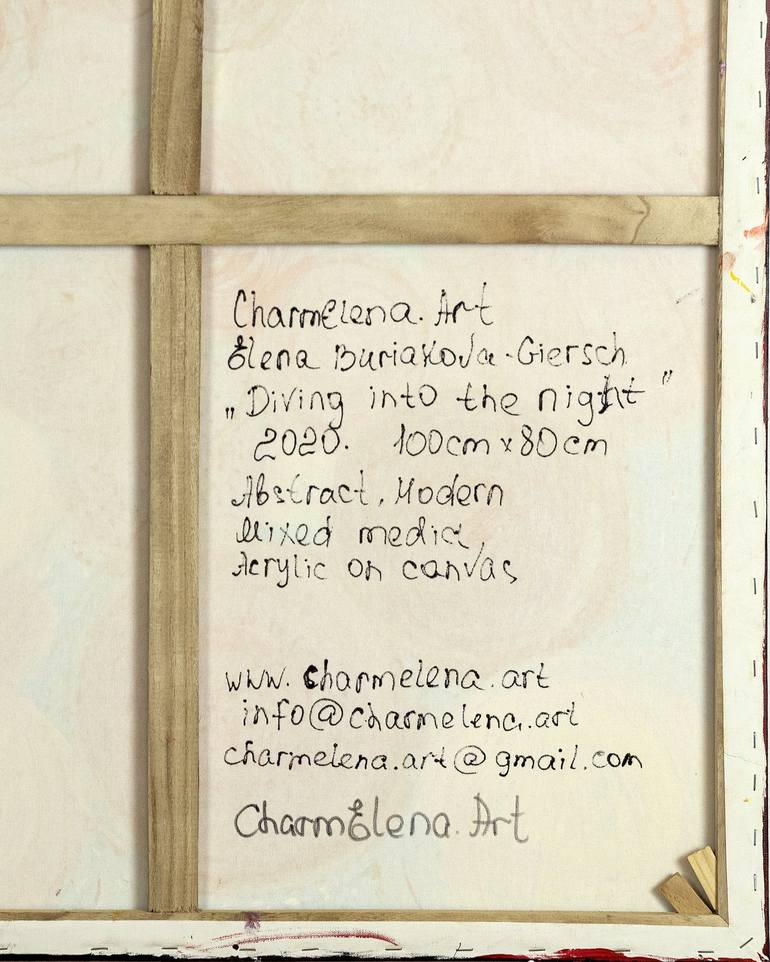 CharmElena. Art
Elena Buriakova-Giersch
„Diving into the night"
2020. 100cm x 80cm
Abstract, Modern
Mixed media,
Acrylic on canvas
www. charmelena.art
info@charmelena.art
charmelena.art@gmail.com
CharmElena. Art